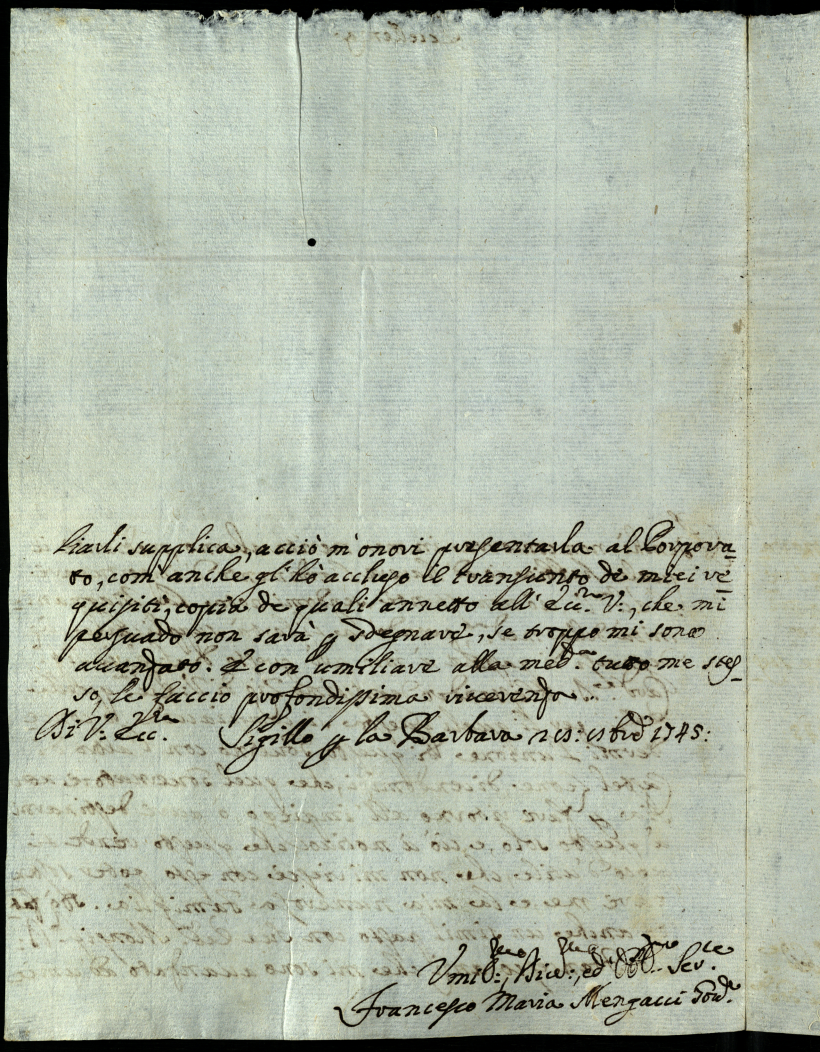 liarli supplica, acciò m'onori presentarla al Porpora=
to, com'anche gl'hò accluso il transunto de miei re=
quisiti, copia de quali annetto all' Ecc.za V:, che mi
persuado non sarà p sdegnare, se troppo mi sono
auanzato. E con umiliare alla med.ma tutto me stes=
so, le faccio profondissima riverenza.
Di V: Ecc.za Sigillo p la Barbara 1745:
Umil:mo, Div:mo, ed Obb:mo Ser.re
Francesco Maria Mengacci